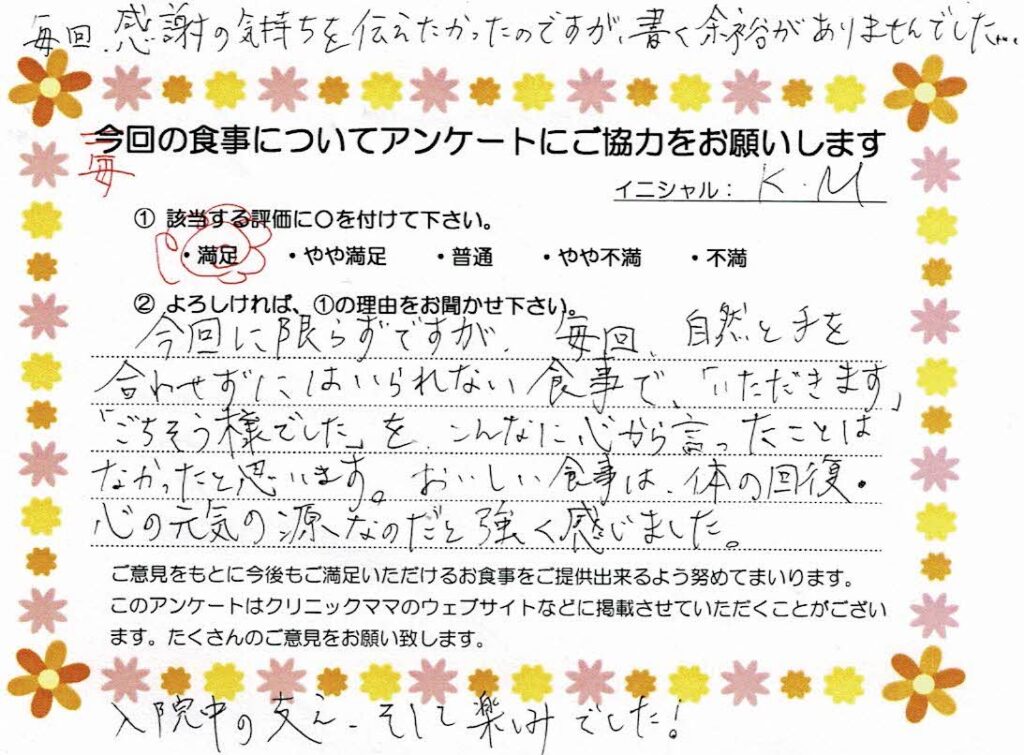 毎回、感謝の気持ちを伝えたかったのですが、書く余裕がありませんでした…
今回の食事についてアンケートにご協力をお願いします
毎
イニシャル： K.M
① 該当する評価に○を付けて下さい。
・満足 ・やや満足 ・普通 ・やや不満 ・不満
② よろしければ、①の理由をお聞かせ下さい。
今回に限らずですが、毎回、自然と手を
合わせずにはいられない食事で、「いただきます」
「ごちそう様でした」を、こんなに心から言ったことは
なかったと思います。おいしい食事は、体の回復・
心の元気の源なのだと強く感じました。
ご意見をもとに今後もご満足いただけるお食事をご提供出来るよう努めてまいります。
このアンケートはクリニックママのウェブサイトなどに掲載させていただくことがござい
ます。たくさんのご意見をお願い致します。
入院中の支え、そして楽しみでした！